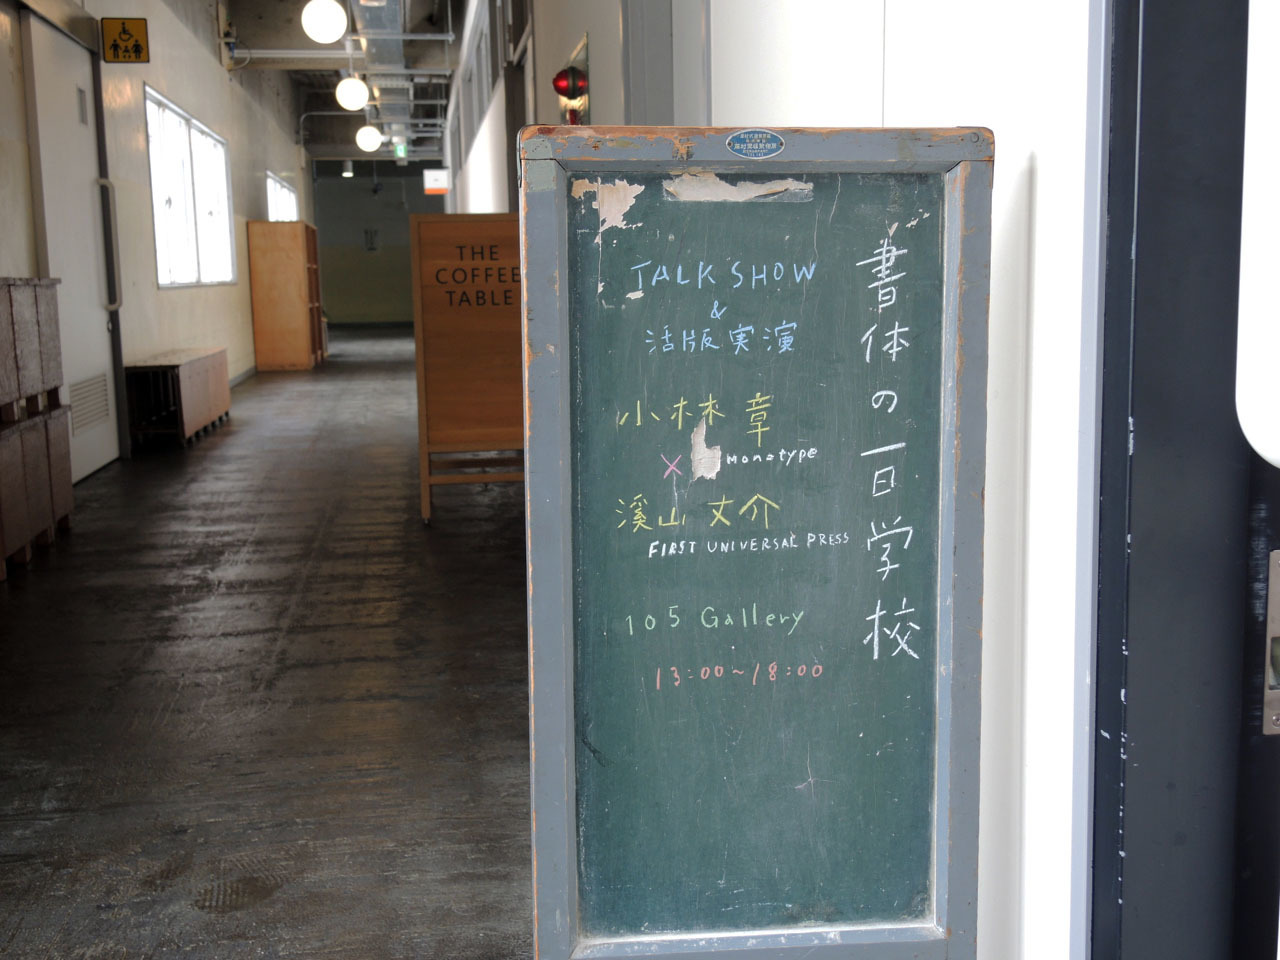 THE
COFFEE
TABLE
書体の一日学校
TALK SHOW
&
活版実演
小林 章
× monotype
溪山 丈介
FIRST UNIVERSAL PRESS
105 Gallery
13:00~18:00